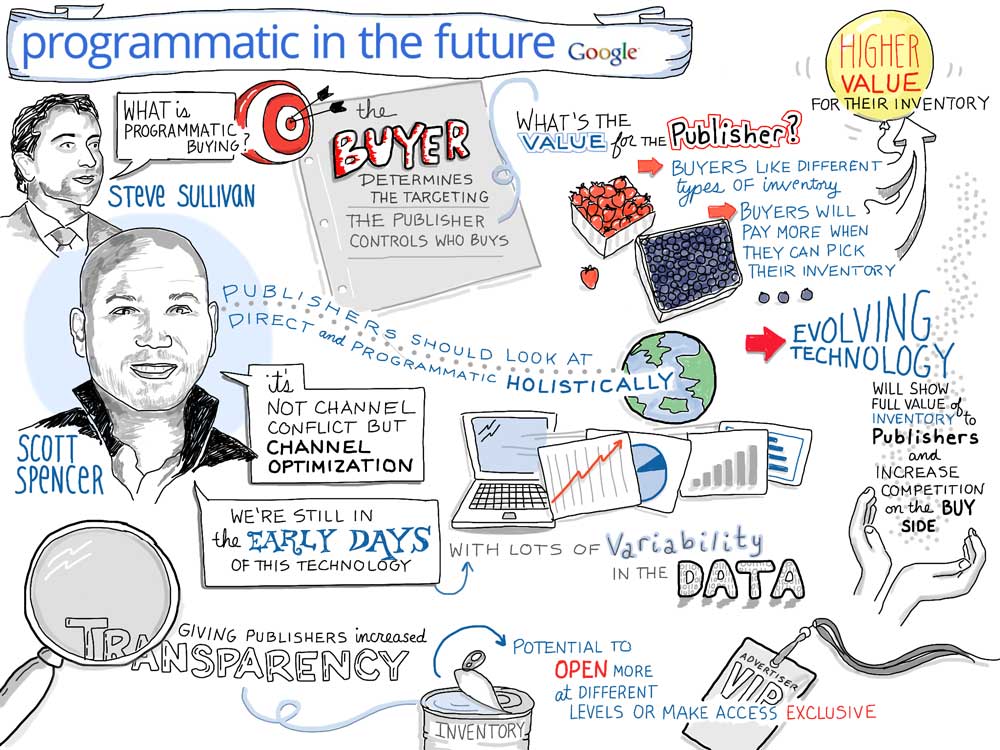 programmatic in the future Google
WHAT is
PROGRAMMATIC
BUYING?
STEVE SULLIVAN
the
BUYER
DETERMINES
THE TARGETING
THE PUBLISHER
CONTROLS WHO BUYS
WHAT'S THE
VALUE for THE Publisher?
BUYERS LIKE DIFFERENT
types OF inventory
BUYERS WILL
PAY MORE WHEN
THEY CAN PICK
THEIR INVENTORY
HIGHER
VALUE
FOR THEIR INVENTORY
PUBLISHERS SHOULD LOOK AT
DIRECT and PROGRAMMATIC HOLISTICALLY
EVOLVING
TECHNOLOGY
WILL SHOW
FULL VALUE of
INVENTORY to
Publishers
and
INCREASE
COMPETITION
on the BUY
SIDE
SCOTT
SPENCER
it's
NOT CHANNEL
CONFLICT BUT
CHANNEL
OPTIMIZATION
WE'RE STILL IN
the EARLY DAYS
OF THIS TECHNOLOGY
WITH LOTS OF Variability
IN THE DATA
GIVING PUBLISHERS increased
TRANSPARENCY
INVENTORY
POTENTIAL TO
OPEN MORE
at DIFFERENT
LEVELS OR MAKE ACCESS EXCLUSIVE
ADVERTISER
VIP